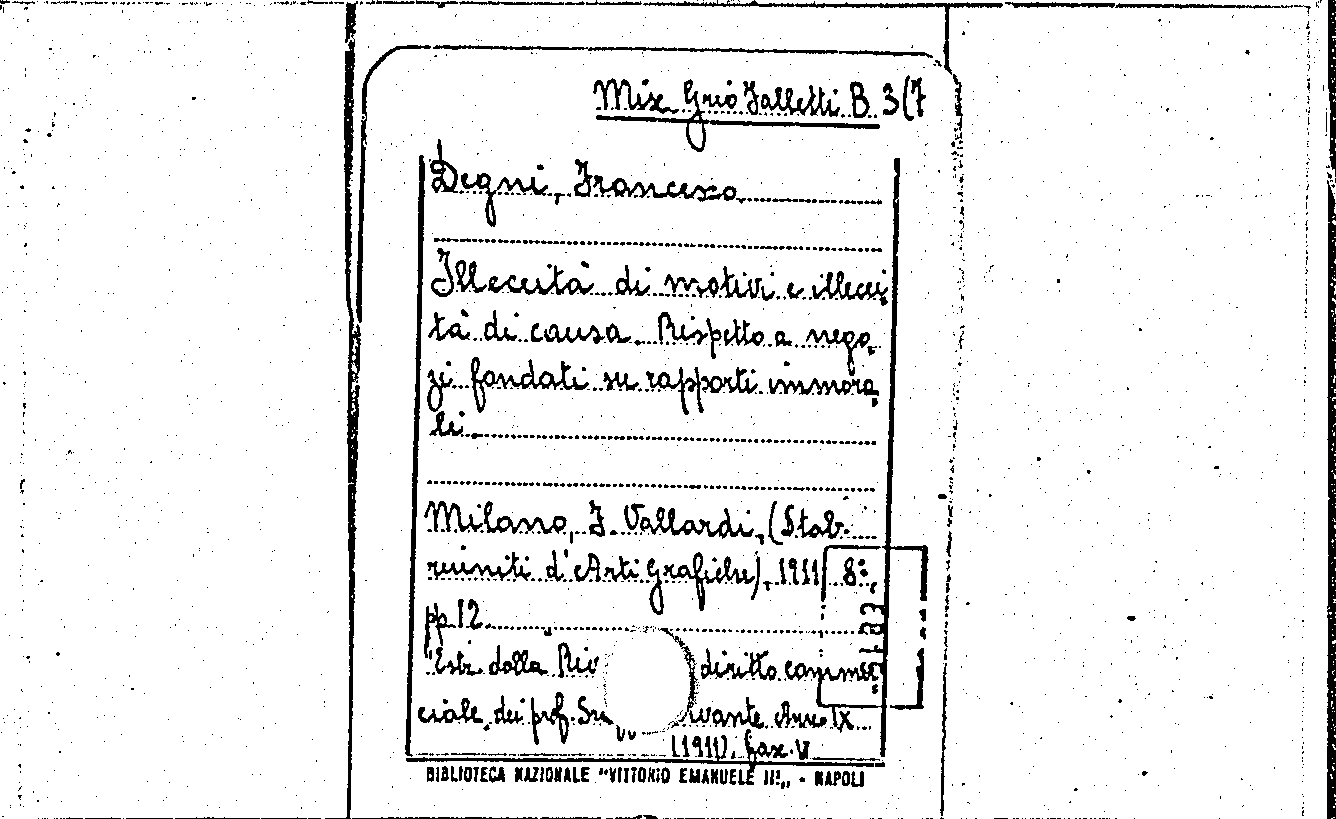 Misc Griò Falletti B. 3(7
Degni, Francesco
Illeceità di motivi e illecei
tà di causa. Rispetto a nego
zi fondati su rapporti immora
li.
Milano, F. Vallardi, (Stab.
riuniti d'Arti Grafiche), 1911 8º,
pp 12.
Estr. dalla Riv diritto commer
ciale dei prof. Sra vante Anno IX
(1911), fasc. VI
BIBLIOTECA NAZIONALE "VITTORIO EMANUELE III„ - NAPOLI